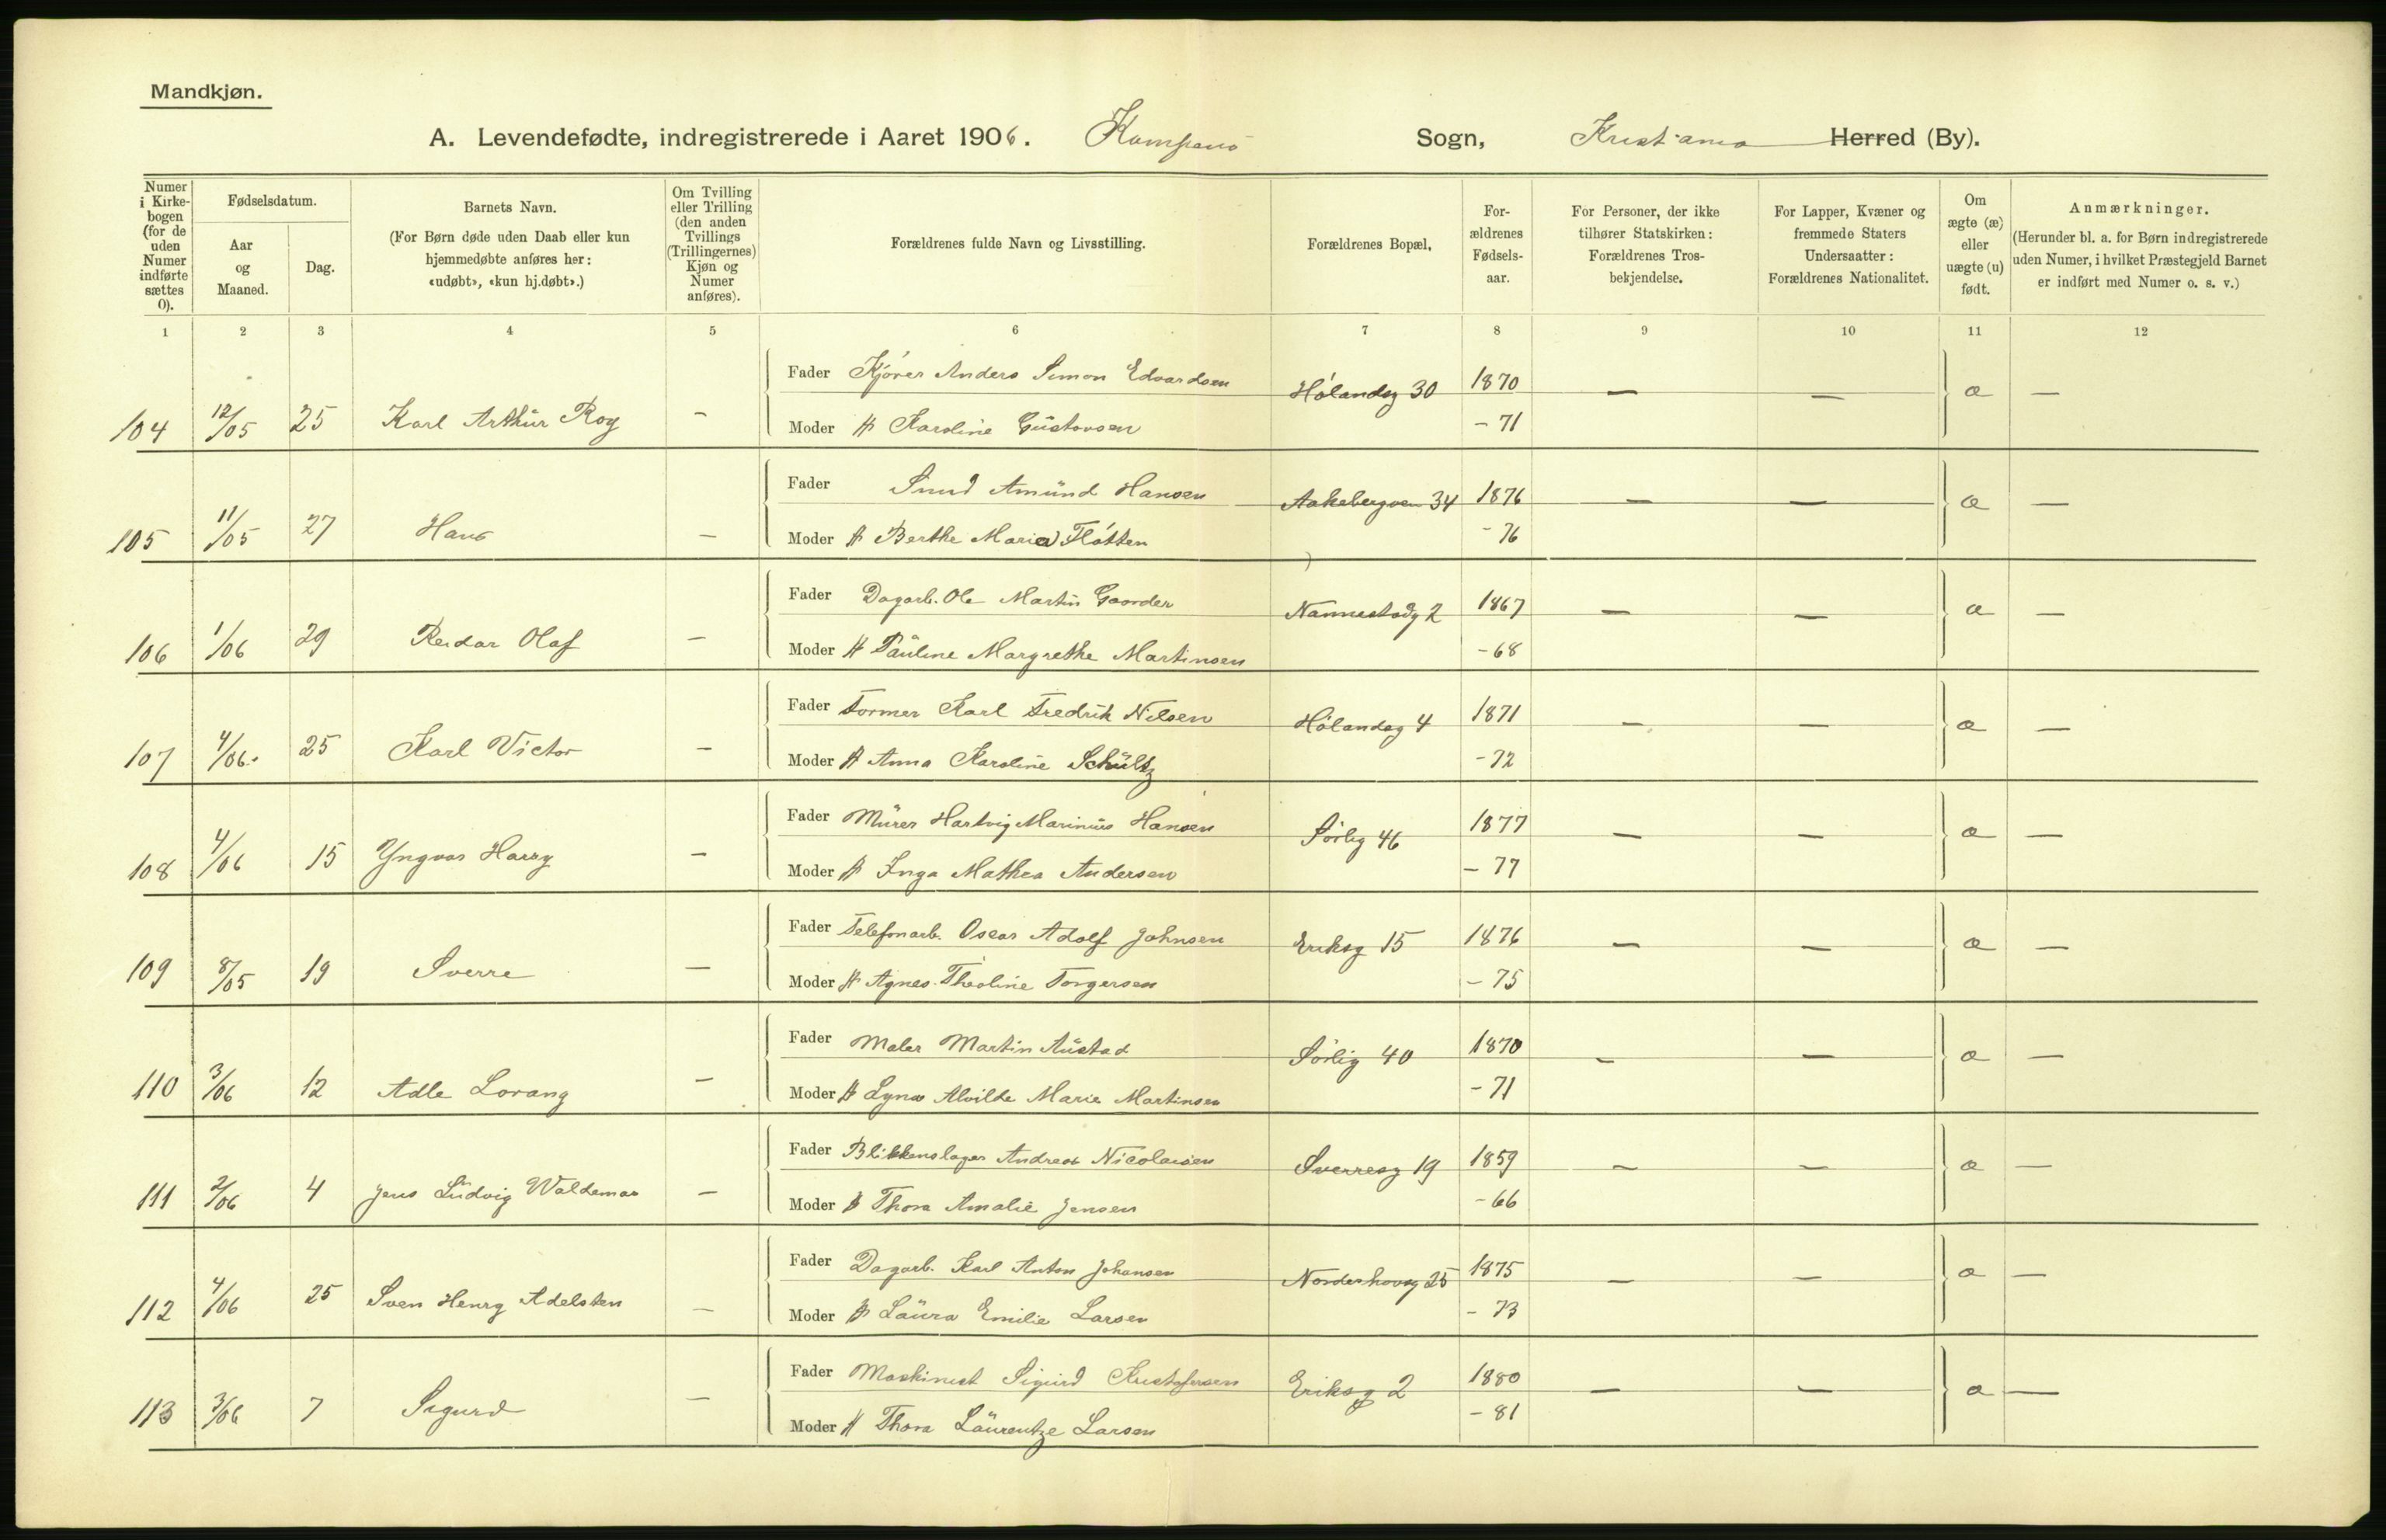 Mandkjøn.
A. Levendefødte, indregistrerede i Aaret 1906. Kampens Sogn, Kristiania Herred (By).
Numer i Kirkebogen (for de uden Numer indførte sættes 0).
Fødselsdatum.
Aar og Maaned.
Dag.
Barnets Navn.
(For Børn døde uden Daab eller kun hjemmedøbte anføres her: «udøbt», «kun hj.døbt».)
Om Tvilling eller Trilling (den anden Tvillings (Trillingernes) Kjøn og Numer anføres).
Forældrenes fulde Navn og Livsstilling.
Forældrenes Bopæl,
Forældrenes Fødselsaar.
For Personer, der ikke tilhører Statskirken: Forældrenes Trosbekjendelse.
For Lapper, Kvæner og fremmede Staters Undersaatter: Forældrenes Nationalitet.
Om ægte (æ) eller uægte (u) født.
Anmærkninger.
(Herunder bl. a. for Børn indregistrerede uden Numer, i hvilket Præstegjeld Barnet er indført med Numer o. s. v.)
1 2 3 4 5 6 7 8 9 10 11 12
Fader Kjører Anders Simon Edvardsen Hølandsg 30 1870 — — æ —
104 12/05 25 Karl Arthur Roy — Moder H Karoline Gustavsen - 71
Fader Smed Amund Hansen Aakebergven 34 1876 — — æ —
105 11/05 27 Hans — Moder H Berthe Maria Fløtten - 76
Fader Dagarb. Ole Martin Gaarder Nannestadg 2 1867 — — æ —
106 1/06 29 Reidar Olaf — Moder H Pauline Margrethe Martinsen - 68
Fader Former Karl Fredrik Nilsen Hølandsg 4 1871 — — æ —
107 4/06. 25 Karl Victor — Moder H Anna Karoline Schultz - 72
Fader Murer Hartvig Marinius Hansen Sørlig 46 1877 — — æ —
108 4/06 15 Yngvar Harry — Moder H Inga Mathea Andersen - 77
Fader Telefonarb. Oscar Adolf Johnsen Eriksg 15 1876 — — æ —
109 8/05 19 Sverre — Moder H Agnes Theoline Torgersen - 75
Fader Maler Martin Austad Sørlig 40 1870 — — æ —
110 3/06 12 Adle Lorang — Moder H Lyna Alvilde Marie Martinsen - 71
Fader Blikkenslager Andreas Nicolaisen Sverresg 19 1859 — — æ —
111 2/06 4 Jens Ludvig Waldemar — Moder H Thora Amalie Jensen - 66
Fader Dagarb. Karl Anton Johansen Norderhovsg 25 1875 — — æ —
112 4/06 25 Sven Henry Adelsten — Moder H Laura Emilie Larsen - 73
Fader Maskinist Sigurd Kristofersen Eriksg 2 1880 — — æ —
113 3/06 7 Sigurd — Moder H Thora Laurentze Larsen - 81